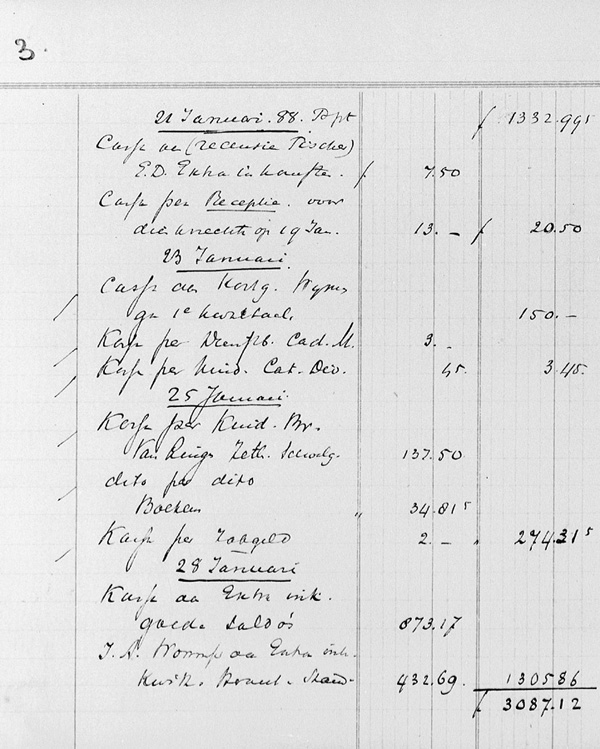 3.
21 Januari. 88. Tspt f 1332.99⁵
Cassa aan (recensie Tischer)
E.D. Extra inkomsten. f 7.50
Cassa per Receptie. voor
die knecht op 19 Jan. 13. – f 20.50
23 Januari.
Cassa aan Kortg.
1e kwartaal. 150. –
Kassa per Cad. M. 3. –
Kassa per Cat. Div. 45. 3.45.
25 Januari.
Kassa per Kuid. Br.
Van 137.50
dito per dito
Boeken " 34.81⁵
Kassa per 2. – " 274.31⁵
28 Januari
Kassa aan Extra ink.
goede saldo's 873.17
J. A. aan Extra ink.
432.69. 1305 86
f 3087.12